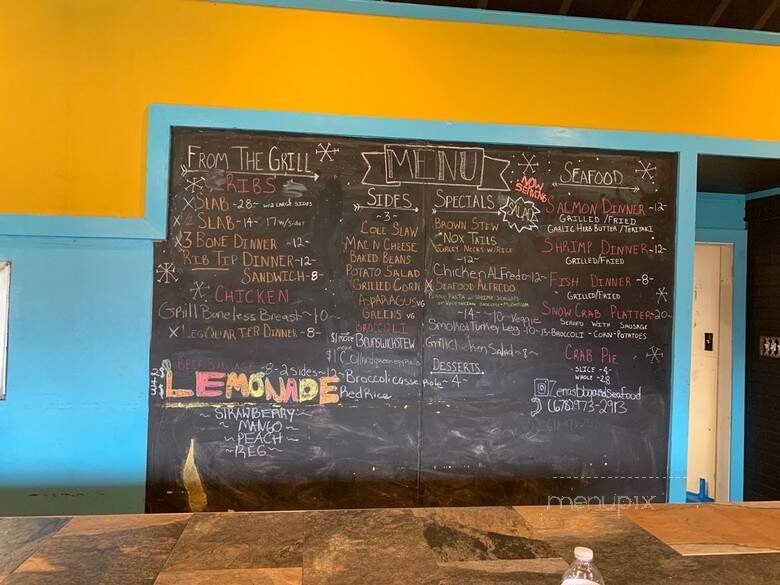 FROM THE GRILL
RIBS
SLAB -28- W/2 LARGE SIDES
1/2 SLAB -14- 17 W/SIDE
3 BONE DINNER -12-
RIB TIP DINNER -12-
SANDWICH -8-
CHICKEN
Grill Boneless Breast -10-
LEG QUARTER DINNER -8-
-8- 2 Sides -12-
LEMONADE
STRAWBERRY
MANGO
PEACH
REG
MENU
SIDES
-3-
COLE SLAW
MAC N CHEESE
BAKED BEANS
POTATO SALAD
GRILLED CORN
ASPARAGUS VG
GREENS VG
BROCCOLI
$1 more BRUNSWICK STEW
$1 Collard greens
Broccoli casserole
Red Rice
SPECIALS
BROWN STEW
NOX TAILS
TURKEY NECKS W/RICE
-12-
Chicken ALFREDO -12-
SEAFOOD ALFREDO
-14- -10- Veggie
Smoked Turkey Leg -10-13-
Grill Chicken Salad -8-
DESSERTS
-4-
NOW SERVING
SALAD
SEAFOOD
SALMON DINNER -12-
GRILLED/FRIED
GARLIC HERB BUTTER/TERIYAKI
SHRIMP DINNER -12-
GRILLED/FRIED
FISH DINNER -8-
GRILLED/FRIED
SNOW CRAB PLATTER -20-
SERVED WITH SAUSAGE
BROCCOLI - CORN - POTATOES
CRAB PIE
SLICE -4-
WHOLE -28
(678)973-2913
menupix